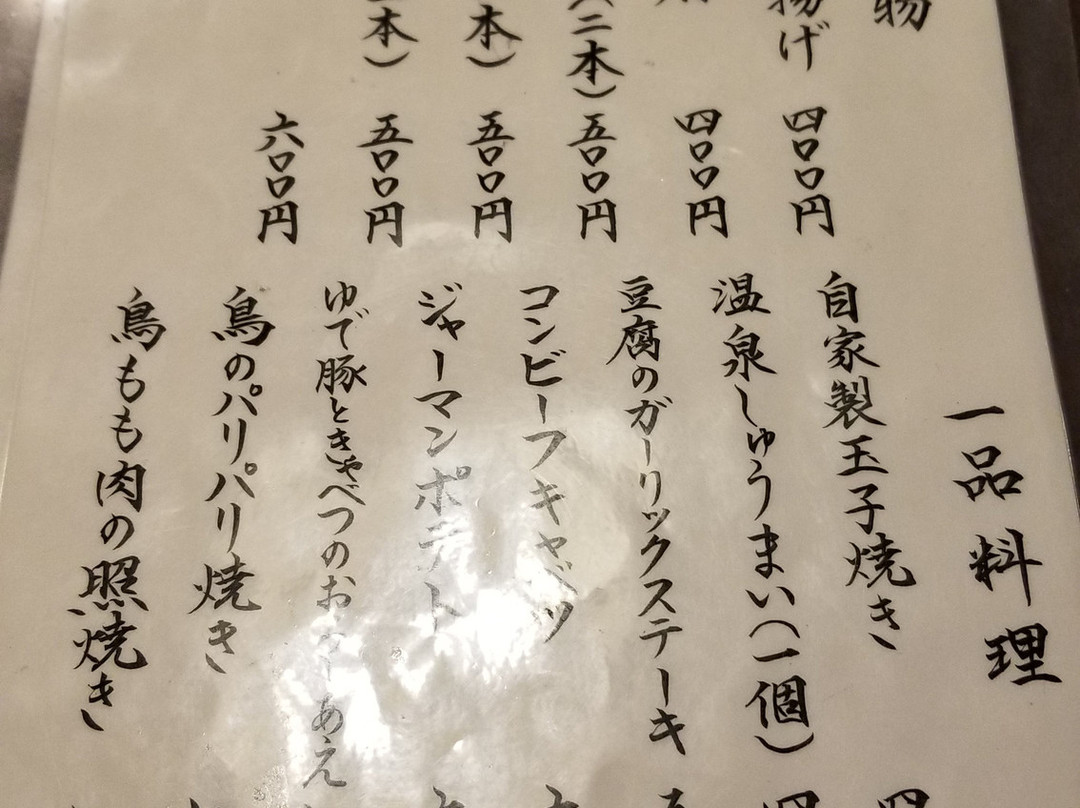 物
揚げ 四〇〇円
四〇〇円
(二本) 五〇〇円
本) 五〇〇円
本) 五〇〇円
六〇〇円
一品料理
自家製玉子焼き
温泉しゅうまい(一個)
豆腐のガーリックステーキ
コンビーフキャベツ
ジャーマンポテト
ゆで豚ときゃべつの あえ
鳥のパリパリ焼き
鳥もも肉の照焼き